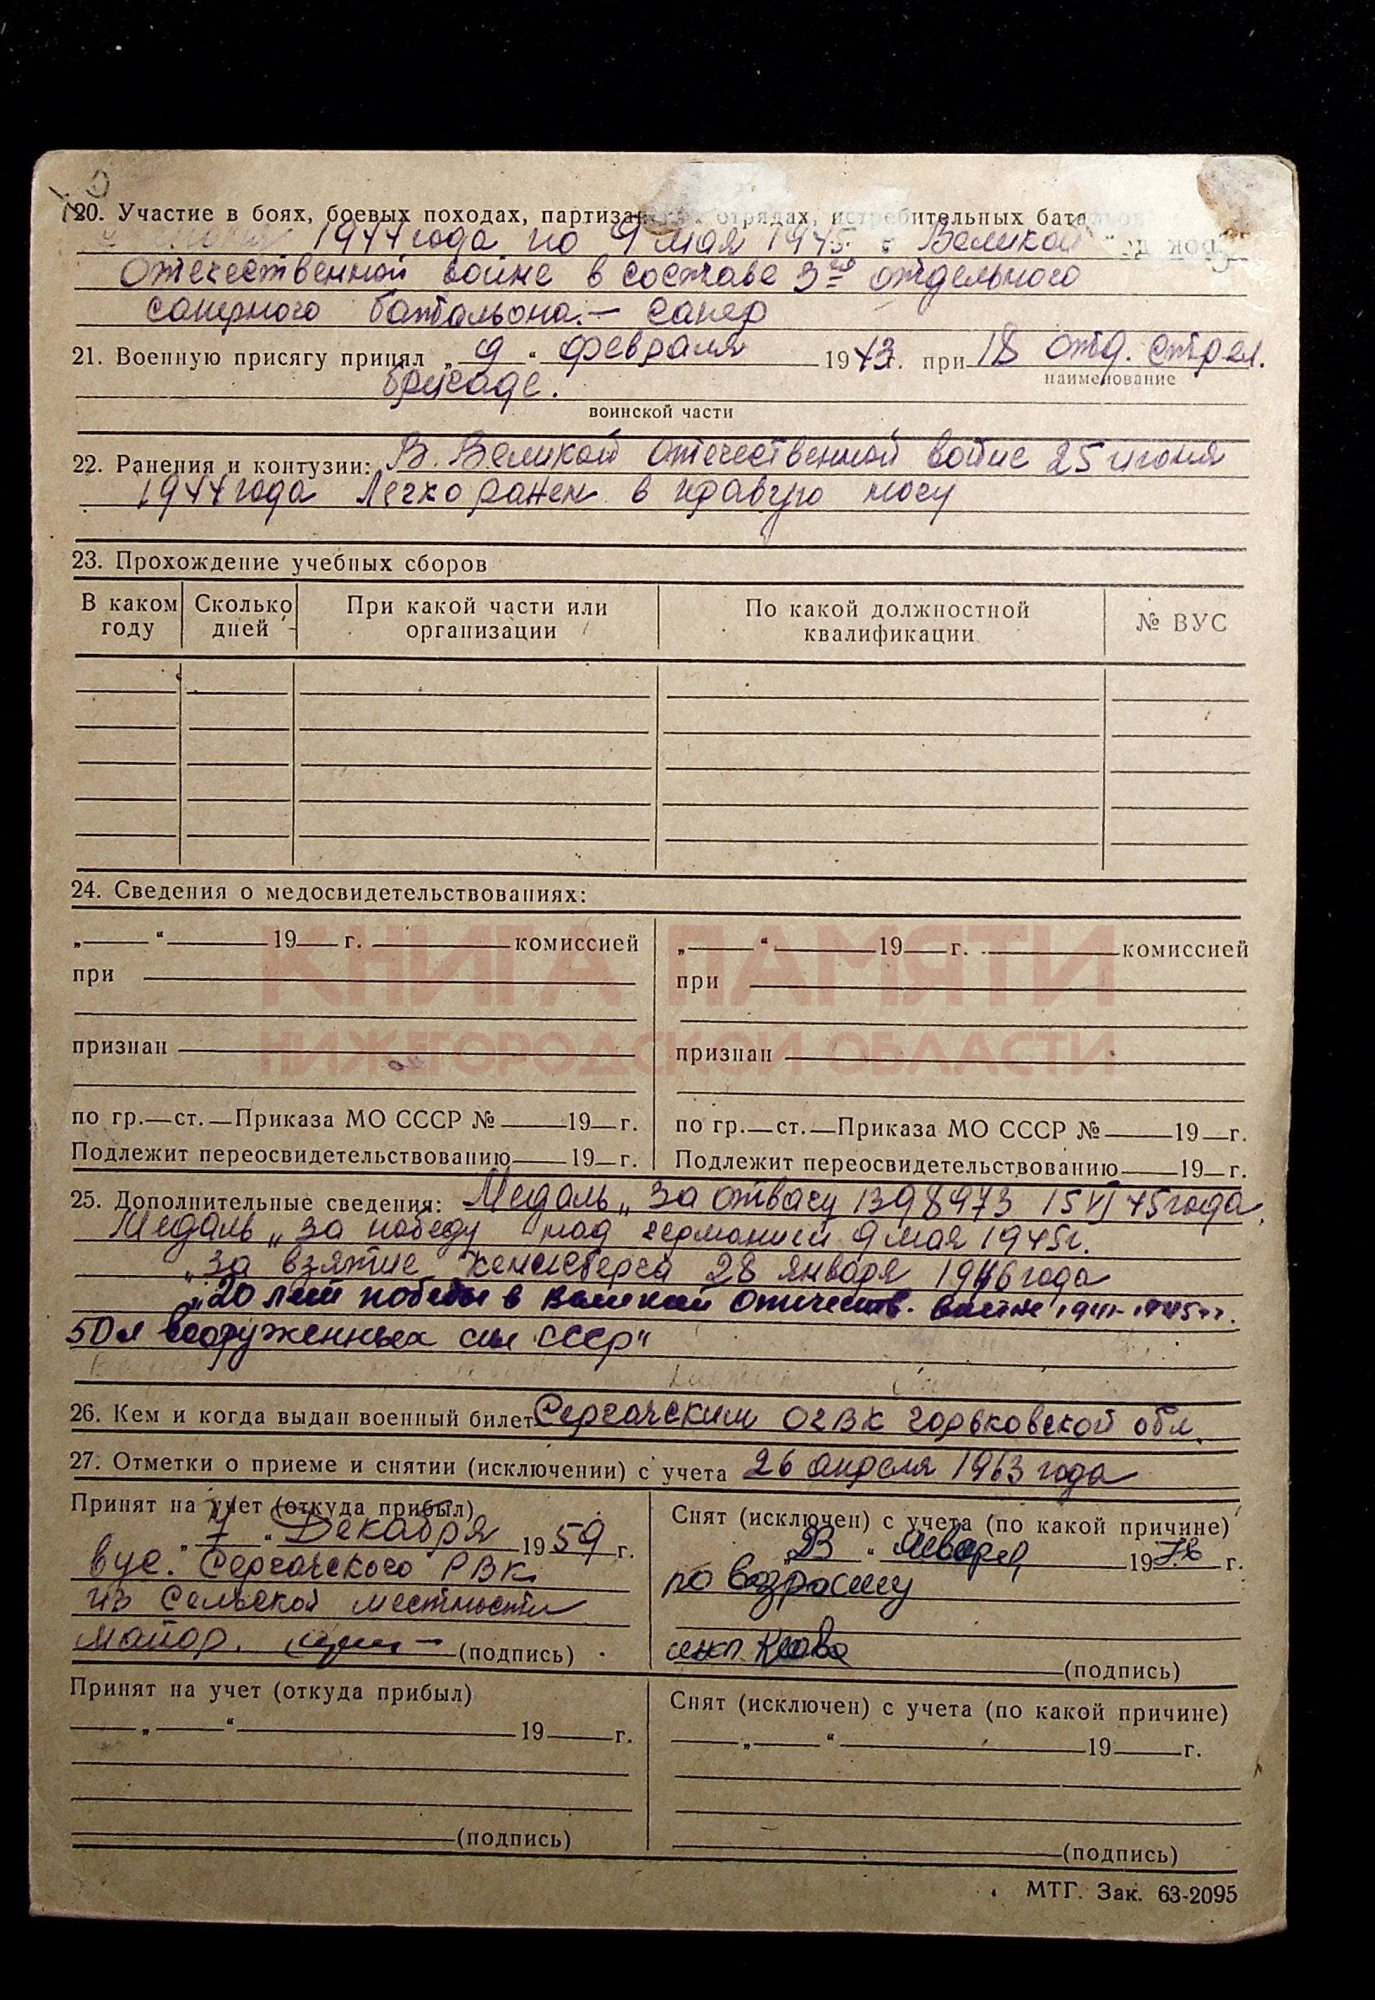 20. Участие в боях, боевых походах, партизанских отрядах, истребительных бата
1944 года по 9 мая 1945 в Великой
Отечественной войне в составе 3го отдельного
саперного батальона. — сапер
21. Военную присягу принял „ 9 “ февраля 1943 г. при 18 отд. стрел.
наименование
бригаде.
воинской части
22. Ранения и контузии: В. Великой Отечественной войне 25 июня
1944 года Легко ранен в правую ногу
23. Прохождение учебных сборов
В каком году Сколько дней При какой части или организации По какой должностной квалификации № ВУС
24. Сведения о медосвидетельствованиях:
„ “ 19 г. комиссией „ “ 19 г. комиссией
КНИГА ПАМЯТИ
при при
НИЖЕГОРОДСКОЙ ОБЛАСТИ
признан признан
по гр.—ст.—Приказа МО СССР № 19 г. по гр.—ст.—Приказа МО СССР № 19 г.
Подлежит переосвидетельствованию 19 г. Подлежит переосвидетельствованию 19 г.
25. Дополнительные сведения: Медаль „За отвагу 1398973 15 VI 45 года.
Медаль „За победу над германией 9 мая 1945 г.
„За взятие Кенигсберга 28 января 1946 года
„20 лет победы в Великой Отечеств. войне 1941-1945 гг.
50 л вооруженных сил СССР“
26. Кем и когда выдан военный билет Сергачским ОГВК Горьковской обл.
27. Отметки о приеме и снятии (исключении) с учета 26 апреля 1963 года
Принят на учет (откуда прибыл) Снят (исключен) с учета (по какой причине)
„ 7 “ Декабря 1959 г. „ 23 “ января 1976 г.
вус. Сергачского РВК. по возрасту
из Сельской местности
майор. (подпись) (подпись)
Принят на учет (откуда прибыл) Снят (исключен) с учета (по какой причине)
„ “ 19 г. „ “ 19 г.
(подпись) (подпись)
МТГ. Зак. 63-2095